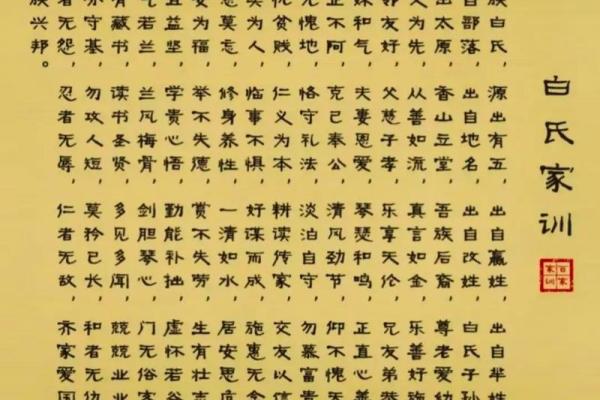 白氏家训
族白氏，源出有五，出自嬴姓，出自芈姓
自部落，出自地名，出自改姓，白氏子孙
出太原，香山立堂，吾族后裔，尊老爱幼
人为先，从善如流，真言如金，乐善好施
邻友好，父慈子孝，乐享天伦，兄友弟恭
妹和气，夫妻恩爱，琴瑟和鸣，正直心善
正不阿，克己奉公，清风劲节，仰不愧天
无愧地，恪守礼法，淡泊自守，勿慕富贵
忧贫贱，仁义为本，耕读传家，交友以信
为人，临事不惧，好谋而成，施惠无念
莫忘，修身养性，一清如水，居安思危
安为福，举不失德，赏不失劳，生有壮志
且益坚，学贵心悟，勤能补拙，虚怀若谷
气若兰，兰风梅骨，剑胆琴心，门无俗客
有藏书，读书圣贤，多见多闻，兢兢业业
守基，勿攻人短，莫矜己长，和者无仇
者无怨，忍者无辱，仁者无敌，齐家爱国
族兴邦。